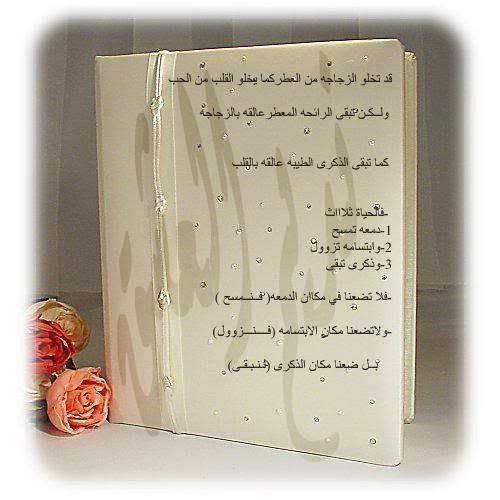 قد تخلو الزجاجه من العطركما يخلو القلب من الحب
ولـكـن تبقى الرائحه المعطر عالقه بالزجاجه
كما تبقى الذكرى الطيبه عالقه بالقلب
-فالحياة ثلاااث
1-دمعه تمسح
2-وابتسامه تزوول
3-وذكرى تبقى
-فلا تضعنا في مكاان الدمعه( فـنـمسح )
-ولاتضعنا مكان الابتسامه (فــنــزوول)
بـل ضعنا مكان الذكرى (فنبـقـى)